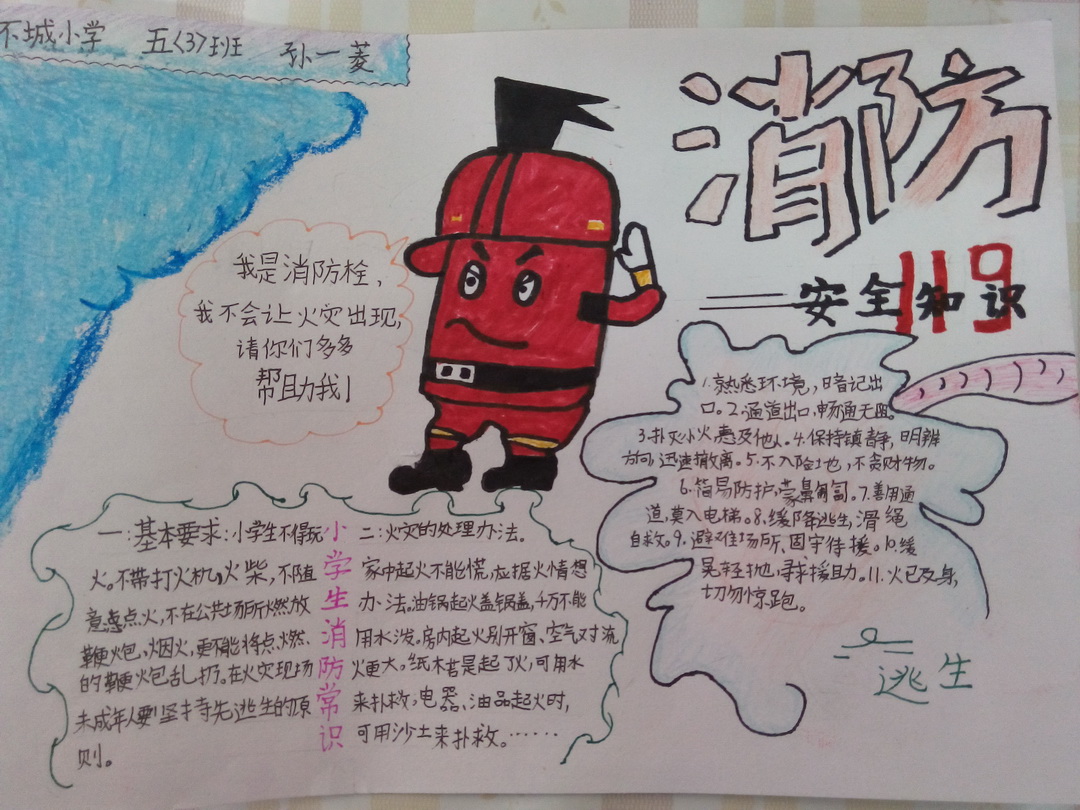 不城小学 五〈3〉班 孙一菱
消防
119
安全知识
我是消防栓,
我不会让火灾出现,
请你们多多
帮助我!
1.熟悉环境,暗记出
口。2.通道出口,畅通无阻。
3.扑灭小火,惠及他人。4.保持镇静,明辨
方向,迅速撤离。5.不入险地,不贪财物。
6.简易防护,蒙鼻匍匐。7.善用通
道,莫入电梯。8.缓降逃生,滑绳
自救。9.避难场所,固守待援。10.缓
晃轻抛,寻求援助。11.火已及身,
切勿惊跑。
逃生
小学生消防常识
一:基本要求:小学生不得玩
火。不带打火机,火柴,不随
意点火,不在公共场所燃放
鞭炮,烟火,更不能将点燃
的鞭炮乱扔。在火灾现场
未成年人要坚持先逃生的原
则。
二:火灾的处理办法。
家中起火不能慌,应据火情想
办法。油锅起火盖锅盖,千万不能
用水泼。房内起火别开窗、空气对流
火更大。纸木若是起了火,可用水
来扑救,电器、油品起火时,
可用沙土来扑救。……